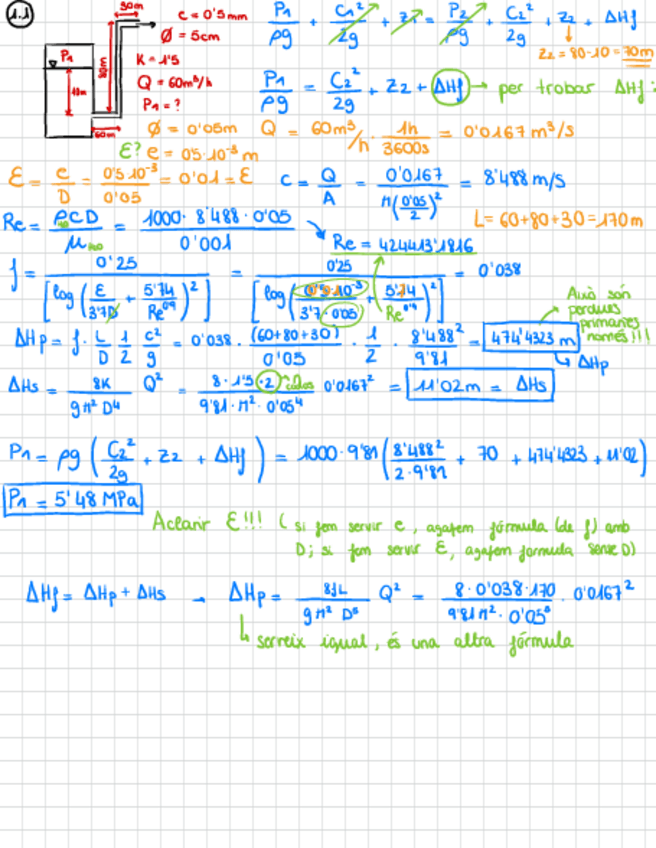 1.1
30m
80m
P₁
10m
60m
e = 0'5mm
Ø = 5cm
K = 1'5
Q = 60m³/h
P₁ = ?
P₁/ρg + C₁²/2g + z₁ = P₂/ρg + C₂²/2g + z₂ + ΔHf
z₂ = 80-10 = 70m
P₁/ρg = C₂²/2g + z₂ + ΔHf → per trobar ΔHf:
Ø = 0'05m Q = 60m³/h · 1h/3600s = 0'0167 m³/s
E? e = 0'5·10⁻³ m
E = e/D = 0'5·10⁻³/0'05 = 0'01 = E c = Q/A = 0'0167/π(0'05/2)² = 8'488 m/s
L = 60+80+30 = 170m
Re = ρCD/μ = 1000· 8'488 · 0'05/0'001
Re = 424413'1816
f = 0'25/[log(E/3'7D + 5'74/Re⁰'⁹)²] = 0'25/[log(0'5·10⁻³/3'7·0'05 + 5'74/Re⁰'⁹)²] = 0'038
Això són perdues primaries només!!!
ΔHp = f · L/D · 1/2 · c²/g = 0'038 · (60+80+30)/0'05 · 1/2 · 8'488²/9'81 = 474'4323 m
→ ΔHp
ΔHs = 8K/gπ²D⁴ Q² = 8 · 1'5 · 2/9'81 · π² · 0'05⁴ 0'0167² = 11'02m = ΔHs
P₁ = ρg (C₂²/2g + z₂ + ΔHf) = 1000 · 9'81 (8'488²/2·9'81 + 70 + 474'4323 + 11'02)
P₁ = 5'48 MPa
Aclarir E!!! ( si fem servir e, agafem fórmula (de f) amb
D; si fem servir E, agafem formula sense D)
ΔHf = ΔHp + ΔHs → ΔHp = 8fL/gπ²D⁵ Q² = 8 · 0'038 · 170/9'81π² · 0'05⁵ · 0'0167²
↳ serveix igual, és una altra fórmula